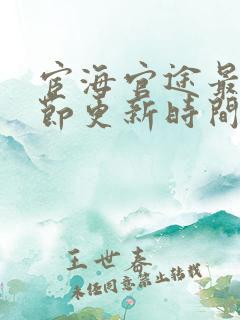 宦海官途最
節更新時間
王世春
未经同意禁止转载